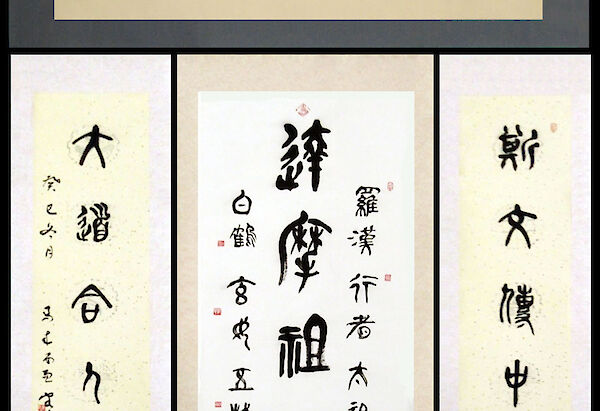 斯文傳中
羅漢行者太
達摩祖
白鶴玄女五
大道合人
癸巳冬月